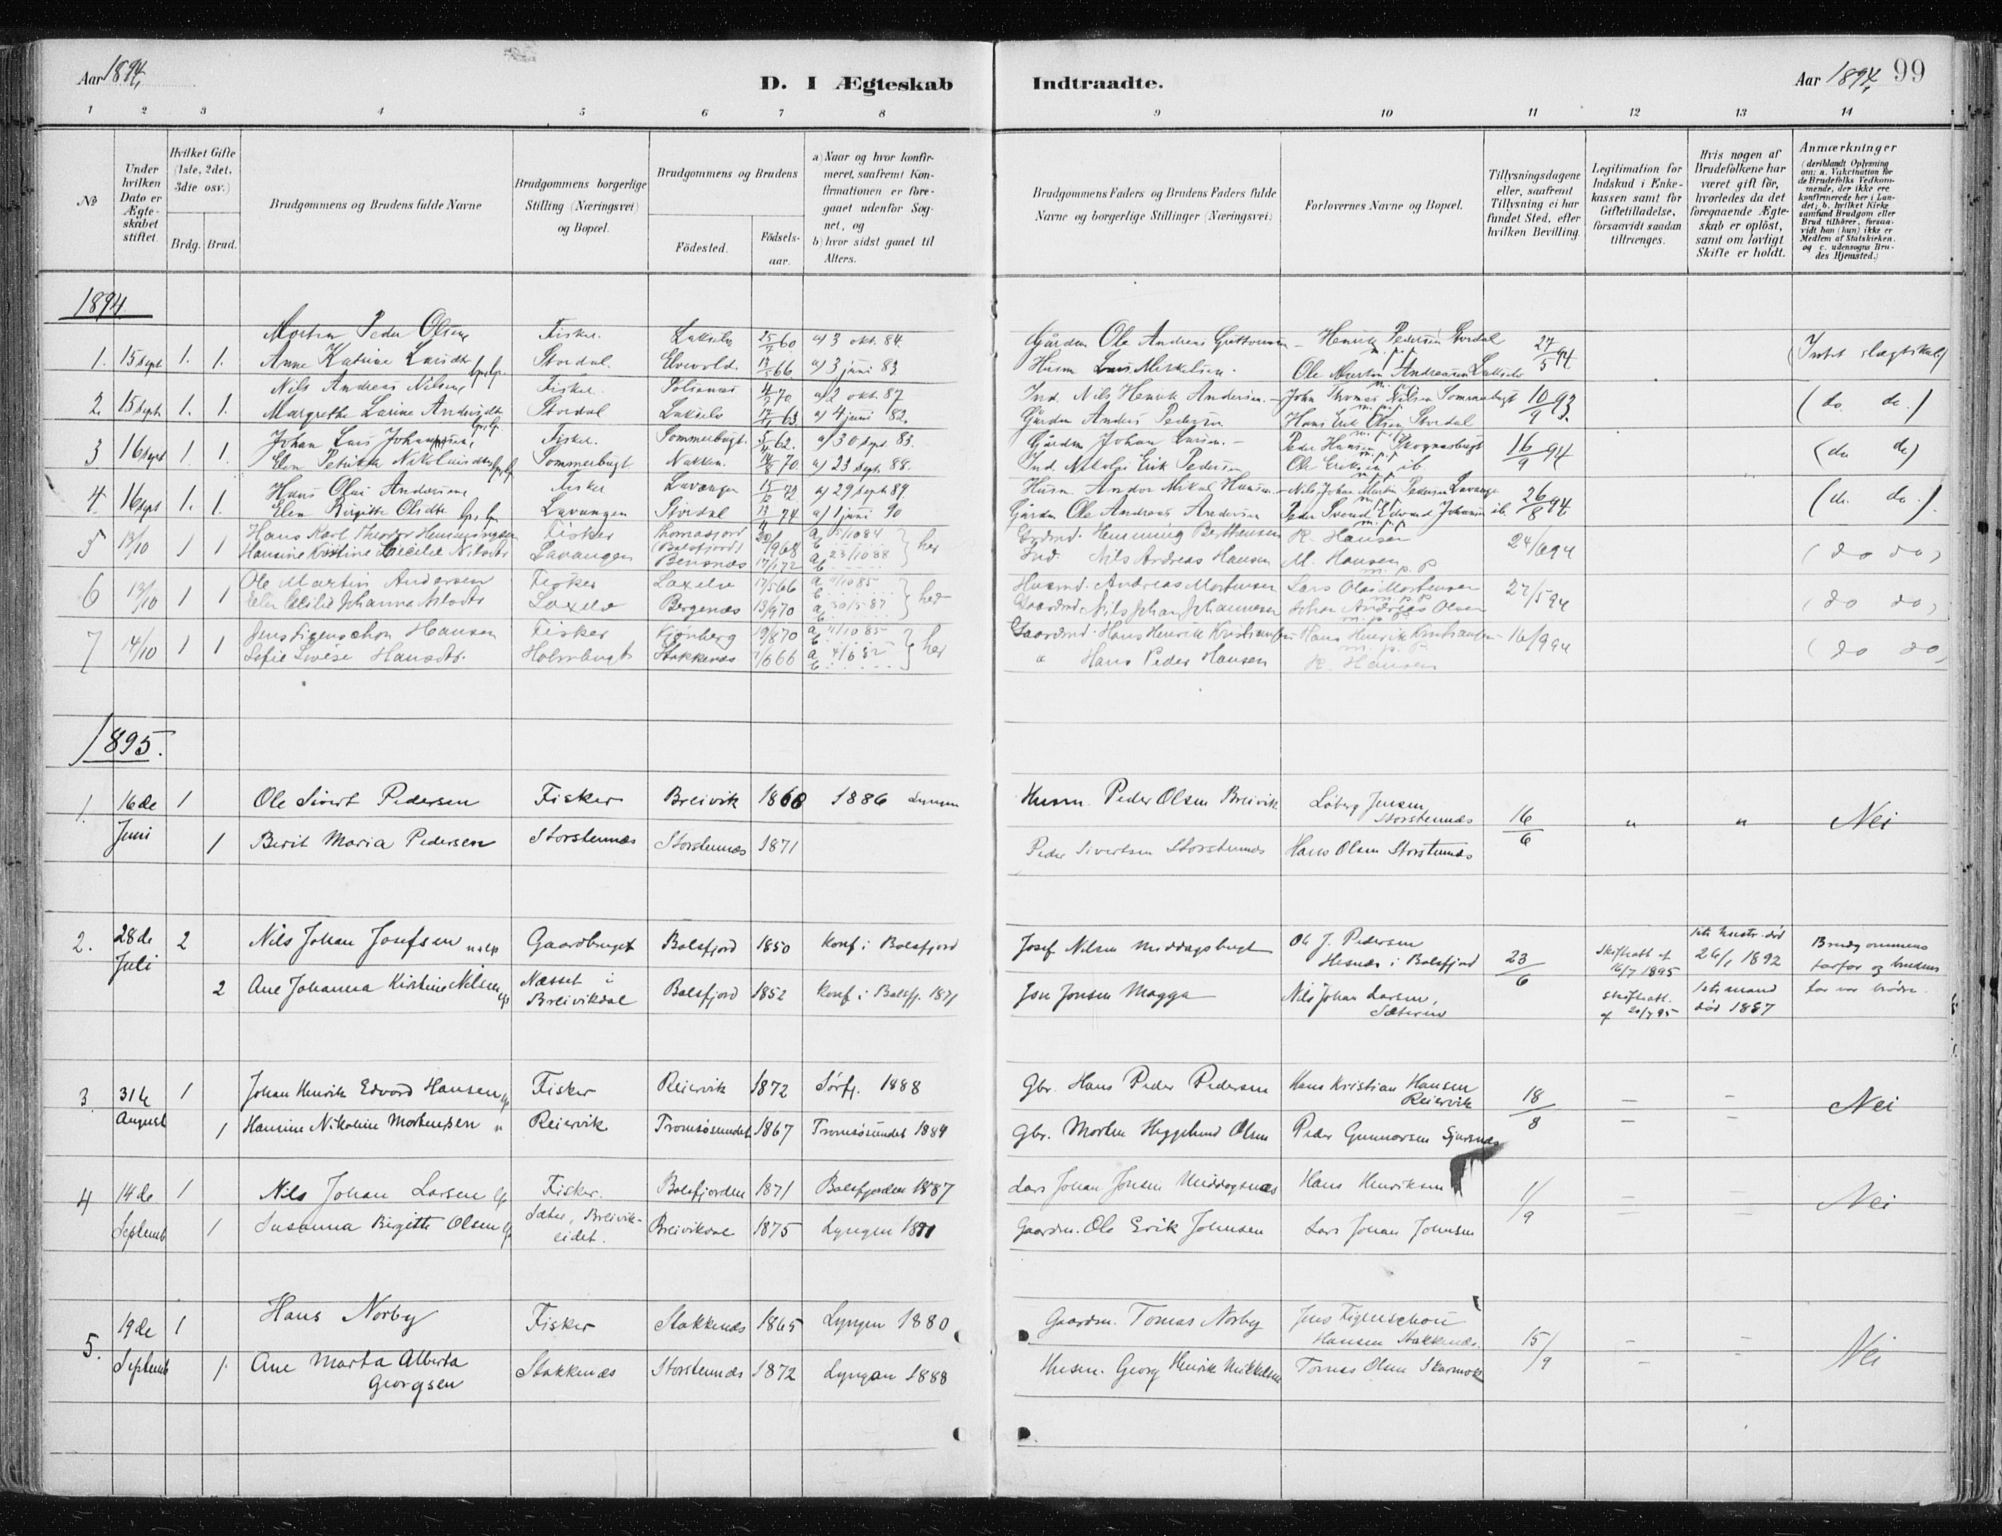 Aar 1894.
D. I Ægteskab Indtraadte.
Aar 1894. 99
1 2 3 4 5 6 7 8 9 10 11 12 13 14
No
Under hvilken Dato er Ægteskabet stiftet
Hvilket Gifte (1ste, 2det, 3die osv.)
Brdg. Brud.
Brudgommens og Brudens fulde Navne
Brudgommens borgerlige Stilling (Næringsvei) og Bopæl.
Brudgommens og Brudens
Fødested. Fødselsaar.
a) Naar og hvor konfirmeret, saafremt Konfirmationen er foregaaet udenfor Sognet, og
b) hvor sidst gaaet til Alters.
Brudgommens Faders og Brudens Faders fulde Navne og borgerlige Stillinger (Næringsvei)
Forlovernes Navne og Bopæl.
Tillysningsdagene eller, saafremt Tillysning ei har fundet Sted, efter hvilken Bevilling.
Legitimation for Indskud i Enkekassen samt for Giftetilladelse, forsaavidt saadan tiltrænges.
Hvis nogen af Brudefolkene har været gift før, hvorledes da det foregaaende Ægteskab er opløst, samt om lovligt Skifte er holdt.
Anmærkninger
(deriblandt Oplysning om: a. Vakcination for de Brudefolks Vedkommende, der ikke ere konfirmerede her i Landet; b. hvilket Kirkesamfund Brudgom eller Brud tilhører, forsaavidt han (hun) ikke er Medlem af Statskirken, og c. udensogns Brudes Hjemsted.)
1894
Morten Peder Olsen Fiskr. Lakselv 25/9 60 a) 3 okt. 84. Gårdm Ole Andreas Guttormsen - Henrik Pedersen Stordal 27/5 94
1. 15 sept 1. 1. Anne Katrine Larsdtr Stordal. Elvevold. 66 a) 3 juni 83 Husm Lars Mikelsen. Ole Morten Andreasen Lakselv (Intet slægtskab)
Nils Andreas Nilsen Fiskr. 70 a) 2 okt. 87 Ind. Nils Henrik Andersen. - John Thomas Nilsen Sommerbugt 10/9 93.
2. 15 sept. 1. 1. Margrethe Larine Andersdtr Stordal Lakselv 63 a) 4 juni 82. Gårdm Anders Pedersen Hans Erik Olsen Stordal (do. do.)
Johan Lars Johannesen, Fiskr. Sommerbugt. 62. a) 30 sept 83. Gårdm Johan Larsen. - Peder Hansen Skognesbugt 16/9 94
3 16 sept 1. 1. Elen Petrikke Nikolaisdtr Sommerbugt Nakken. 70 a) 23 sept. 88. Ind. Nikolai Erik Pedersen Ole Eriksen ib. (do do)
Hans Olai Andersen Fisker Lavangen 72 a) 29 sept 89. Husm Andor Mikal Hansen. - Nils Johan Martin Pedersen Lavange 26/8 94
4 16 sept 1. 1. Elen Birgitte Olsdtr Lavangen Stordal 74 a) 1 juni 90 Gårdm Ole Andreas Andersen Peder Svend Edvard Johansen ib. (do. do.)
Hans Karl Theodor Henningsen Fisker Thomasjord (Balsfjord) 68 a 5/10 84 Henning Bertheusen K. Hansen
5 13/10 1 1 Hansine Kristine Cecilie Nilsdtr Lavangen Bensnæs 17/1 72 a 28/10 88 her Ind. Nils Andreas Hansen M. Hansen 24/6 94 (do do)
Ole Martin Andersen Fisker Laxelv 17/5 66 a 4/10 85 Husmd. Andreas Mortensen Lars Olai Mortensen
6 13/10 1 1 Elen Cecilie Johanna Nilsdtr Laxelv Bergenæs 13/9 70 a 30/5 87 her Gaardmd. Nils Johan Johannesen Johan Andreas Olsen 27/5 94 (do do)
Jens Figenschou Hansen Fisker 19/8 70 a 4/10 85 Gaardmd. Hans Henrik Kristiansen Hans Henrik Kristiansen
7 14/10 1 1 Sofie Lovise Hansdtr. Holmbugt Stakkenæs 66 a 4/6 82 her " Hans Peder Hansen K. Hansen 16/9 94 (do do)
1895.
1. 16de Juni 1 Ole Sivert Pedersen Fisker Breivik 1868 1886 Lyngen Husm. Peder Olsen Breivik Løberg Jensen, Storstennæs 16/6 " " Nei
1 Berit Maria Pedersen Storstennæs Storstennæs 1871 Peder Sivertsen Storstennæs Hans Olsen Storstennæs
2. 28de Juli 2 Nils Johan Josefsen Gaardbruger Balsfjord 1850 Konf. i Balsfjord Josef Nilsen Middagsbugt Ole J. Pedersen Hesnæs i Balsfjord 23/6 Skifteatt. af 16/7 1895 1ste hustr. død 26/1 1892 Brudgommens farfar og brudens far var brødre.
2 Ane Johanna Kirstine Nilsen Næsset i Breivikdal Balsfjord 1852 Konf. i Balsfj. 1871 Jon Jonsen Magga Nils Johan Larsen, Sæteren Skifteatt. af 20/7 95 1ste mand død 1887
3. 31te August 1 Johan Henrik Edvard Hansen Fisker Reiervik 1872 Sørfj. 1888 Gbr. Hans Peder Pedersen Hans Kristian Hansen Reiervik 18/8 - - Nei
1 Hansine Nikoline Mortensen Reiervik Tromsøsundet 1867 Tromsøsundet 1884 Gbr. Morten Heggelund Olsen Peder Gunnarsen Sjursnæs
4 14de Septemb 1 Nils Johan Larsen Fisker. Balsfjorden 1871 Balsfjorden 1887 Lars Johan Jonsen Middagsnæs Hans Henriksen 1/9 - - Nei
1 Susanna Birgitte Olsen Sæter, Breivikeidet. Breivikdal 1875 Lyngen 1891 Gaardm. Ole Erik Johnsen Lars Johan Johnsen
5. 19de Septemb 1 Hans Norby Fisker Stakkenæs 1865 Lyngen 1880 Gaardm. Tomas Norby Jens Figenschou Hansen Stakkenæs. 15/9 - - Nei
1. Ane Marta Alberta Georgsen Stakkenæs Storstennæs 1872 Lyngen 1888 Husm. Georg Henrik Mikkelsen Tomas Olsen Skarmo